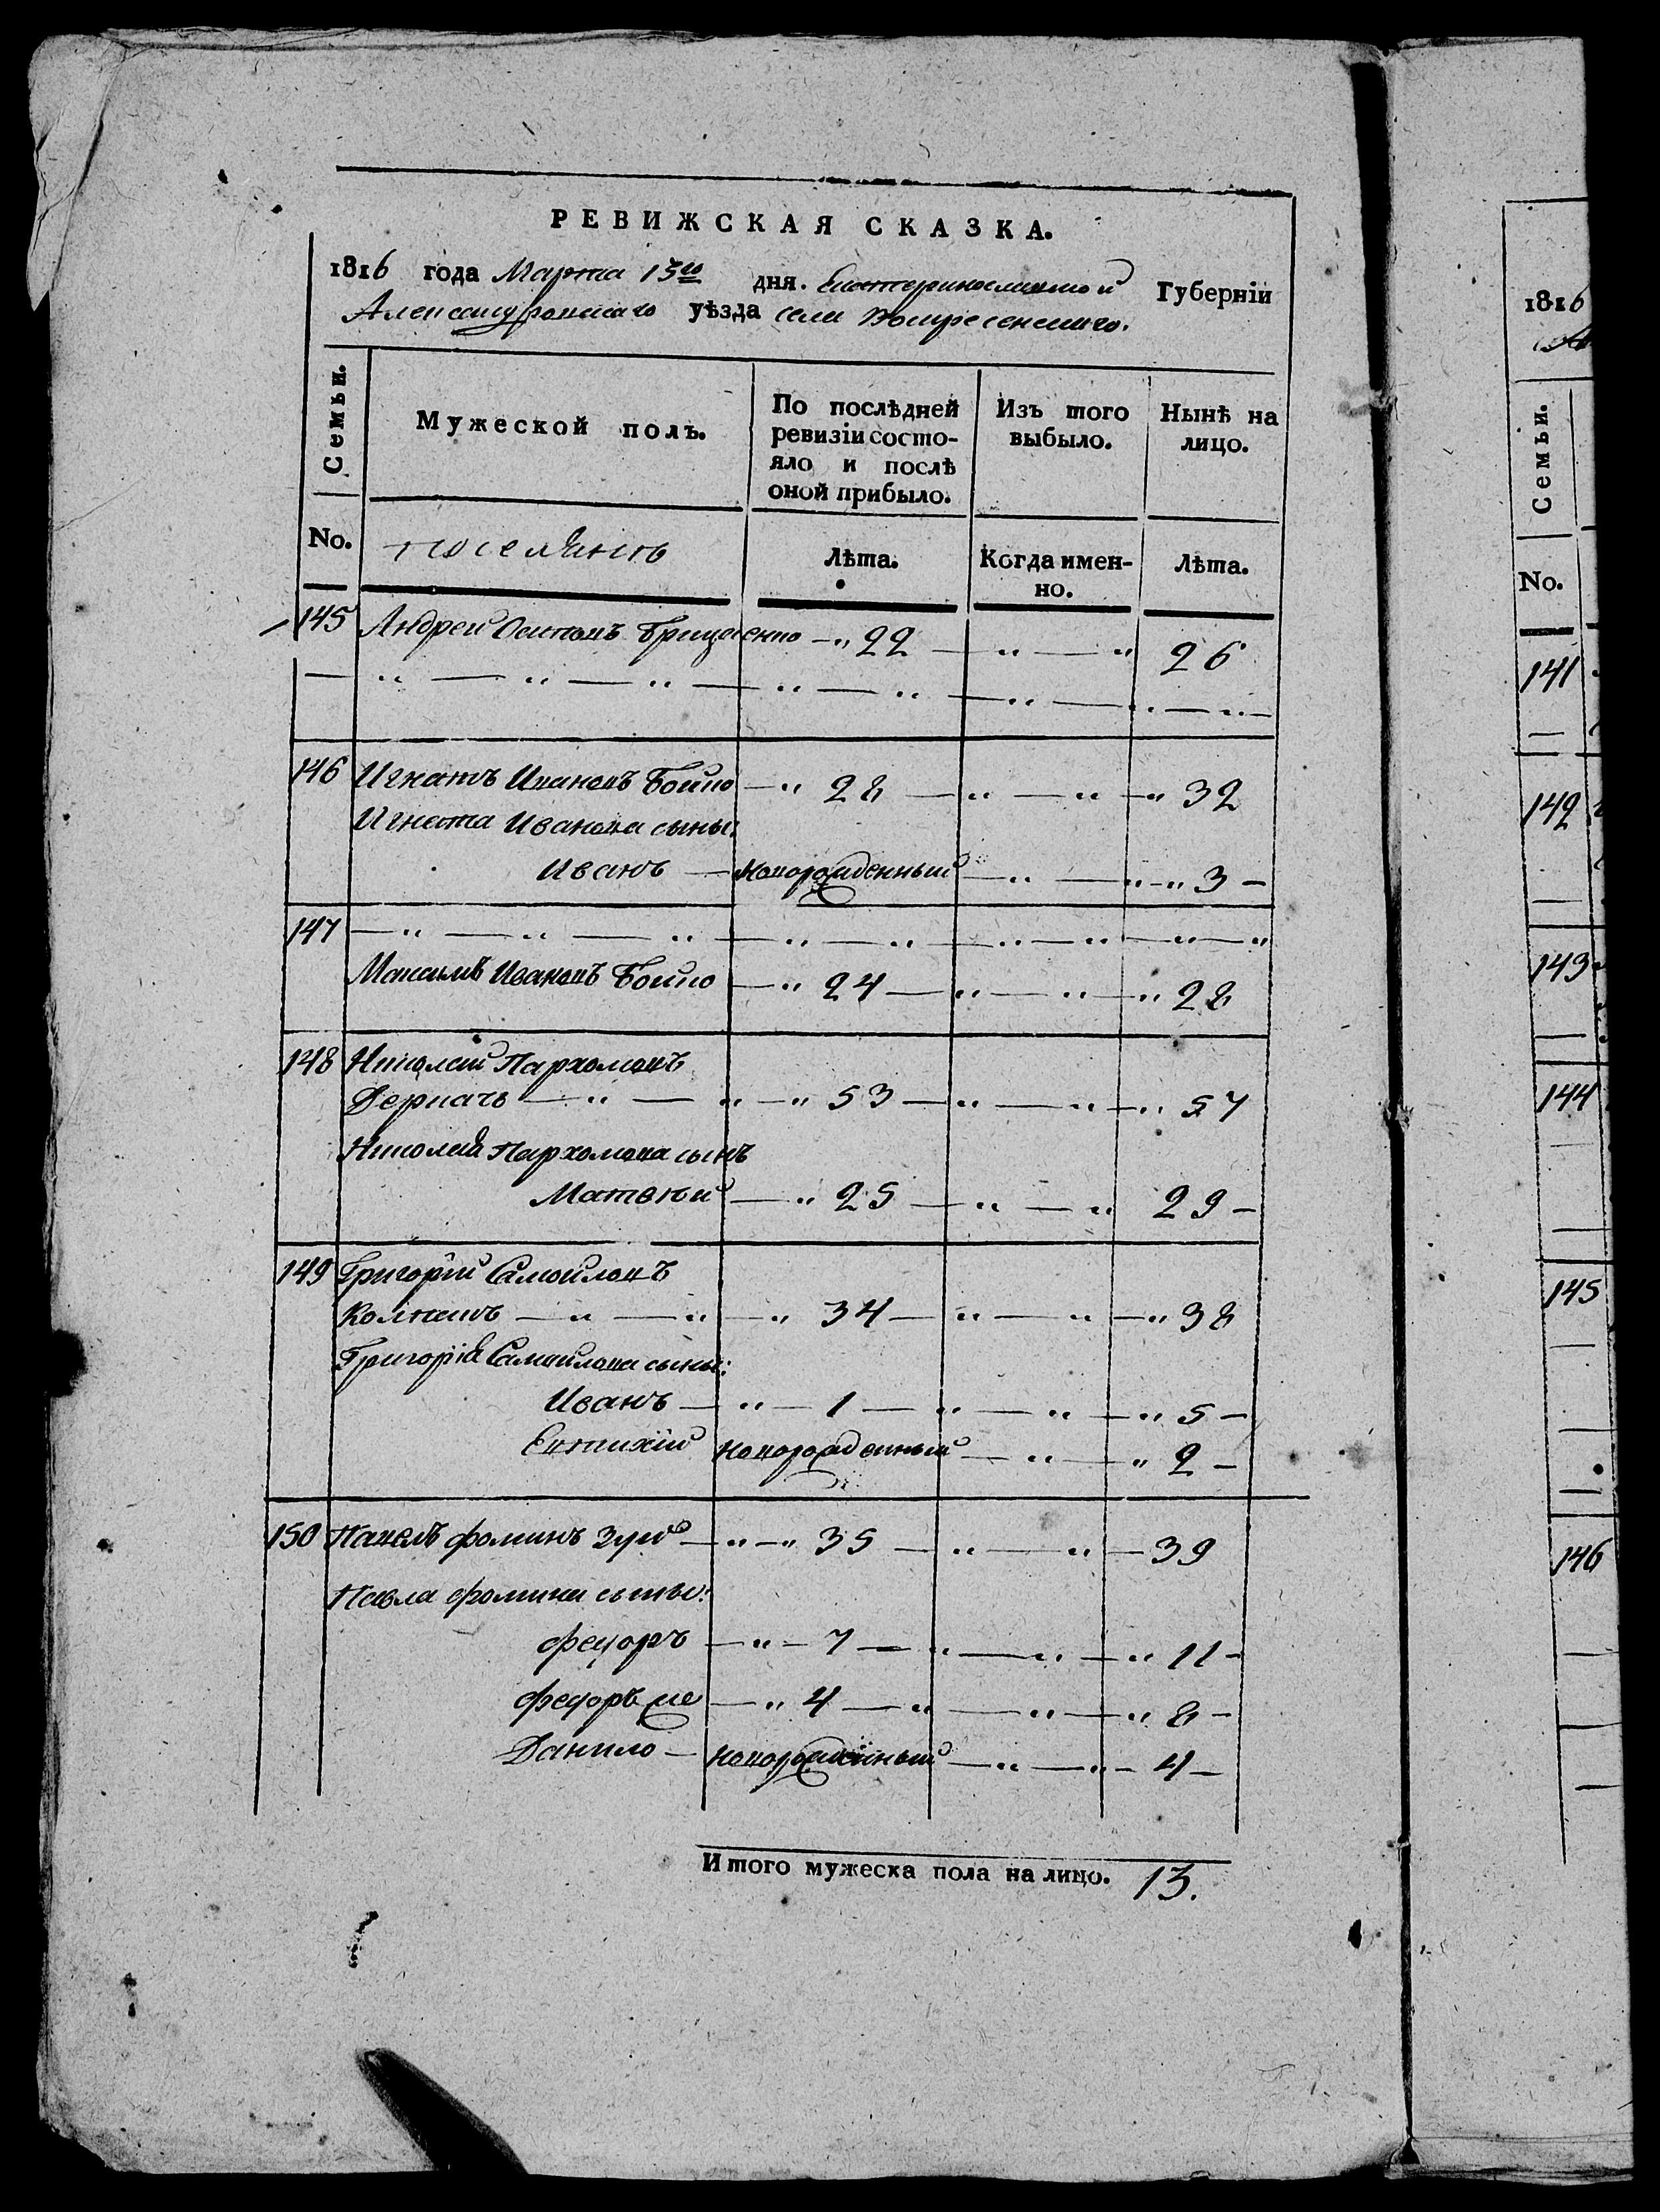 РЕВИЖСКАЯ СКАЗКА.
1816 года Марта 15го дня. Екатеринославской Губерніи
Александровскаго уѣзда села Воскресенскаго.
Семьи. Мужеской полъ. По послѣдней ревизіи состояло и послѣ оной прибыло. Изъ того выбыло. Нынѣ на лицо.
No. поселянъ Лѣта. Когда именно. Лѣта.
145 Андрей Осиповъ Грицаенко — " 22 — " — " 26
— " — " — " — " — " — " — " — " —
146 Игнатъ Ивановъ Бойко — " 28 — " — " — " 32
Игната Иванова сыны:
Иванъ — Новорожденный — " — " — " 3 —
147 — " — " — " — " — " — " — " — " — "
Максимъ Ивановъ Бойко — " 24 — " — " — " 28
148 Николай Пархомовъ
Деркачъ — " — " — " 53 — " — " — " 57
Николая Пархомова сынъ
Матвѣй — " 25 — " — " 29 —
149 Григорій Самойловъ
Колпакъ — " — " — " 34 — " — " — " 38
Григорія Самойлова сыны:
Иванъ — " — 1 — " — " — " 5 —
Евтихій новорожденный — " — " 2 —
150 Павелъ Фоминъ Зуй — " — " 35 — " — " — 39
Павла Фомина сыны:
Федоръ — " — 7 — " — " — " 11 —
Федоръ же — " 4 — " — " — " 8 —
Данило — новорожденный — " — " — 4 —
Итого мужеска пола на лицо. 13.
1816
Семьи.
No.
141
142
143
144
145
146